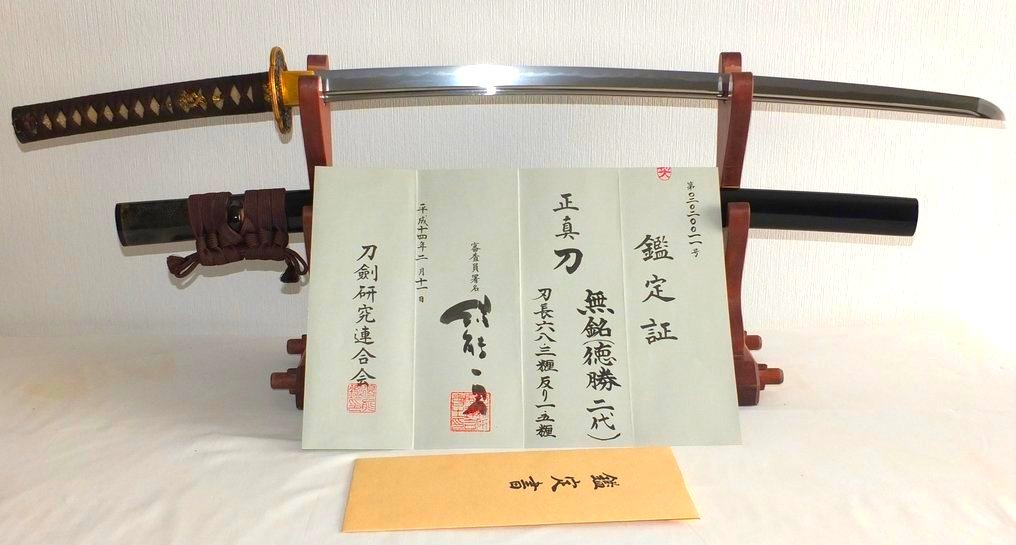 第〇二〇二〇〇一一号
鑑定証
正真
刀
無銘(徳勝二代)
刃長六八.三糎反り一.五糎
審査員署名
平成十四年二月十一日
刀劍研究連合会
鑑定書